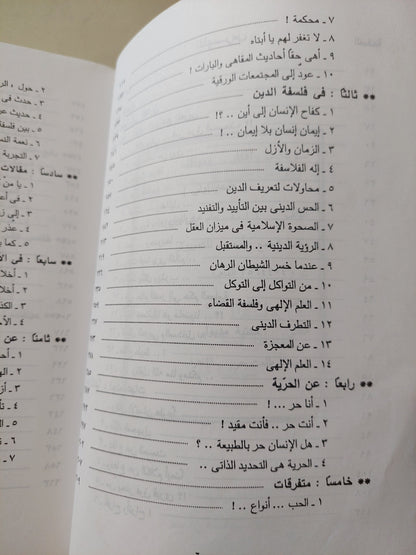 ٧ ـ محكمة !
٨ ـ لا تغفر لهم يا أبناء
٩ ـ أهى حقاً أحاديث المقاهى والبارات !
١٠ ـ عودٌ إلى المجتمعات الورقية
** ثالثاً : فى فلسفة الدين
١ ـ كفاح الإنسان إلى أين .. ؟!
٢ ـ إيمان إنسان بلا إيمان .. !
٣ ـ الزمان والأزل
٤ ـ إله الفلاسفة
٥ ـ محاولات لتعريف الدين
٦ ـ الحس الدينى بين التأييد والتفنيد
٧ ـ الصحوة الإسلامية فى ميزان العقل
٨ ـ الرؤية الدينية .. والمستقبل
٩ ـ عندما خسر الشيطان الرهان
١٠ ـ من التواكل إلى التوكل
١١ ـ العلم الإلهى وفلسفة القضاء
١٢ ـ التطرف الدينى
١٣ ـ عن المعجزة
١٤ ـ العلم الإلهى
** رابعاً : عن الحرّية
١ ـ أنا حر ... !
٢ ـ أنت حر .. فأنت مقيد !
٣ ـ هل الإنسان حر بالطبيعة .. ؟
٤ ـ الحرية هى التحديد الذاتى ..
** خامساً : متفرقات
١ ـ الحب ... أنواع .. !
٢ ـ حول ، الر
٣ ـ حدث فى
٤ ـ حديث عن
٥ ـ بين فلسفة
٦ ـ نعمة الن
٧ ـ التجربة
** سادساً : مقالات
١ ـ يا من
٢ ـ فى أع
٣ ـ إلى ز
٤ ـ صدر
٥ ـ كما ي
** سابعاً : فى الأ
١ ـ أخلا
٢ ـ أخلا
٣ ـ الكذ
٤ ـ الأ
** ثامناً : عن
١ ـ أحـ
٢ ـ اله
٣ ـ أز
٤ ـ تأ